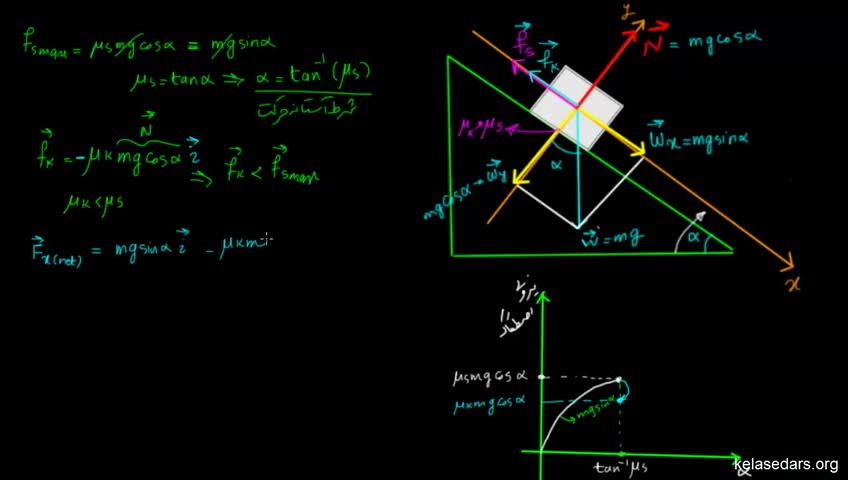 f⃗smax = μs mg cosα = mg sinα
μs = tanα ⇒ α = tan⁻¹(μs)
شرط آستانه حرکت
N⃗
f⃗k = -μk mg cosα i⃗
⇒ f⃗k < f⃗smax
μk < μs
F⃗x(net) = mg sinα i⃗ - μk m
y
f⃗s
f⃗k
N⃗ = mg cosα
μk, μs
W⃗x = mg sinα
α
mg cosα → W⃗y
W⃗ = mg
α
x
نیروی
اصطکاک
μs mg cosα
μk mg cosα
mg sinα
tan⁻¹μs
α
kelasedars.org